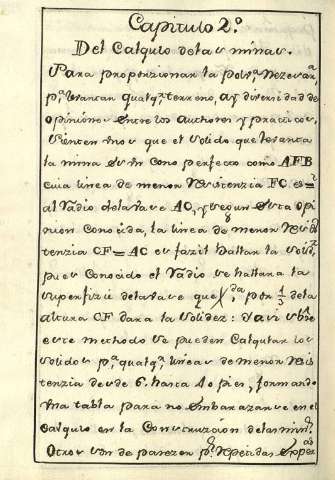 Capitulo 2.º
Del Calqulo de las minas.
Para proporzionar la polv.ª nezesar.ª
p.ª lebantar qualq.r terreno, ay diversidad de
opiniones entre los authores y practicos,
sienten unos que el solido que lebanta
la mina es un Cono perfecto como AFB
cuia linea de menor resistenzia FC es =
al radio de la vase AC, y segun esta opi
nion Conocida, la linea de menor resis
tenzia CF = AC es fazil hallar la solid.z
pues Conocido el radio se hallara la
superfizie de la vase que X.da por 1/3 de la
altura CF dara la solidez: y asi vsre
este methodo se pueden Calqular los
solidos p.ª qualq.r lineas de menor resis
tenzia desde 6. hasta 40 pies, formando
una tabla para no embarazarse en el
Calqulo en la Construzion de las min.s
Otros son de parezer p.r repetidas exper.as